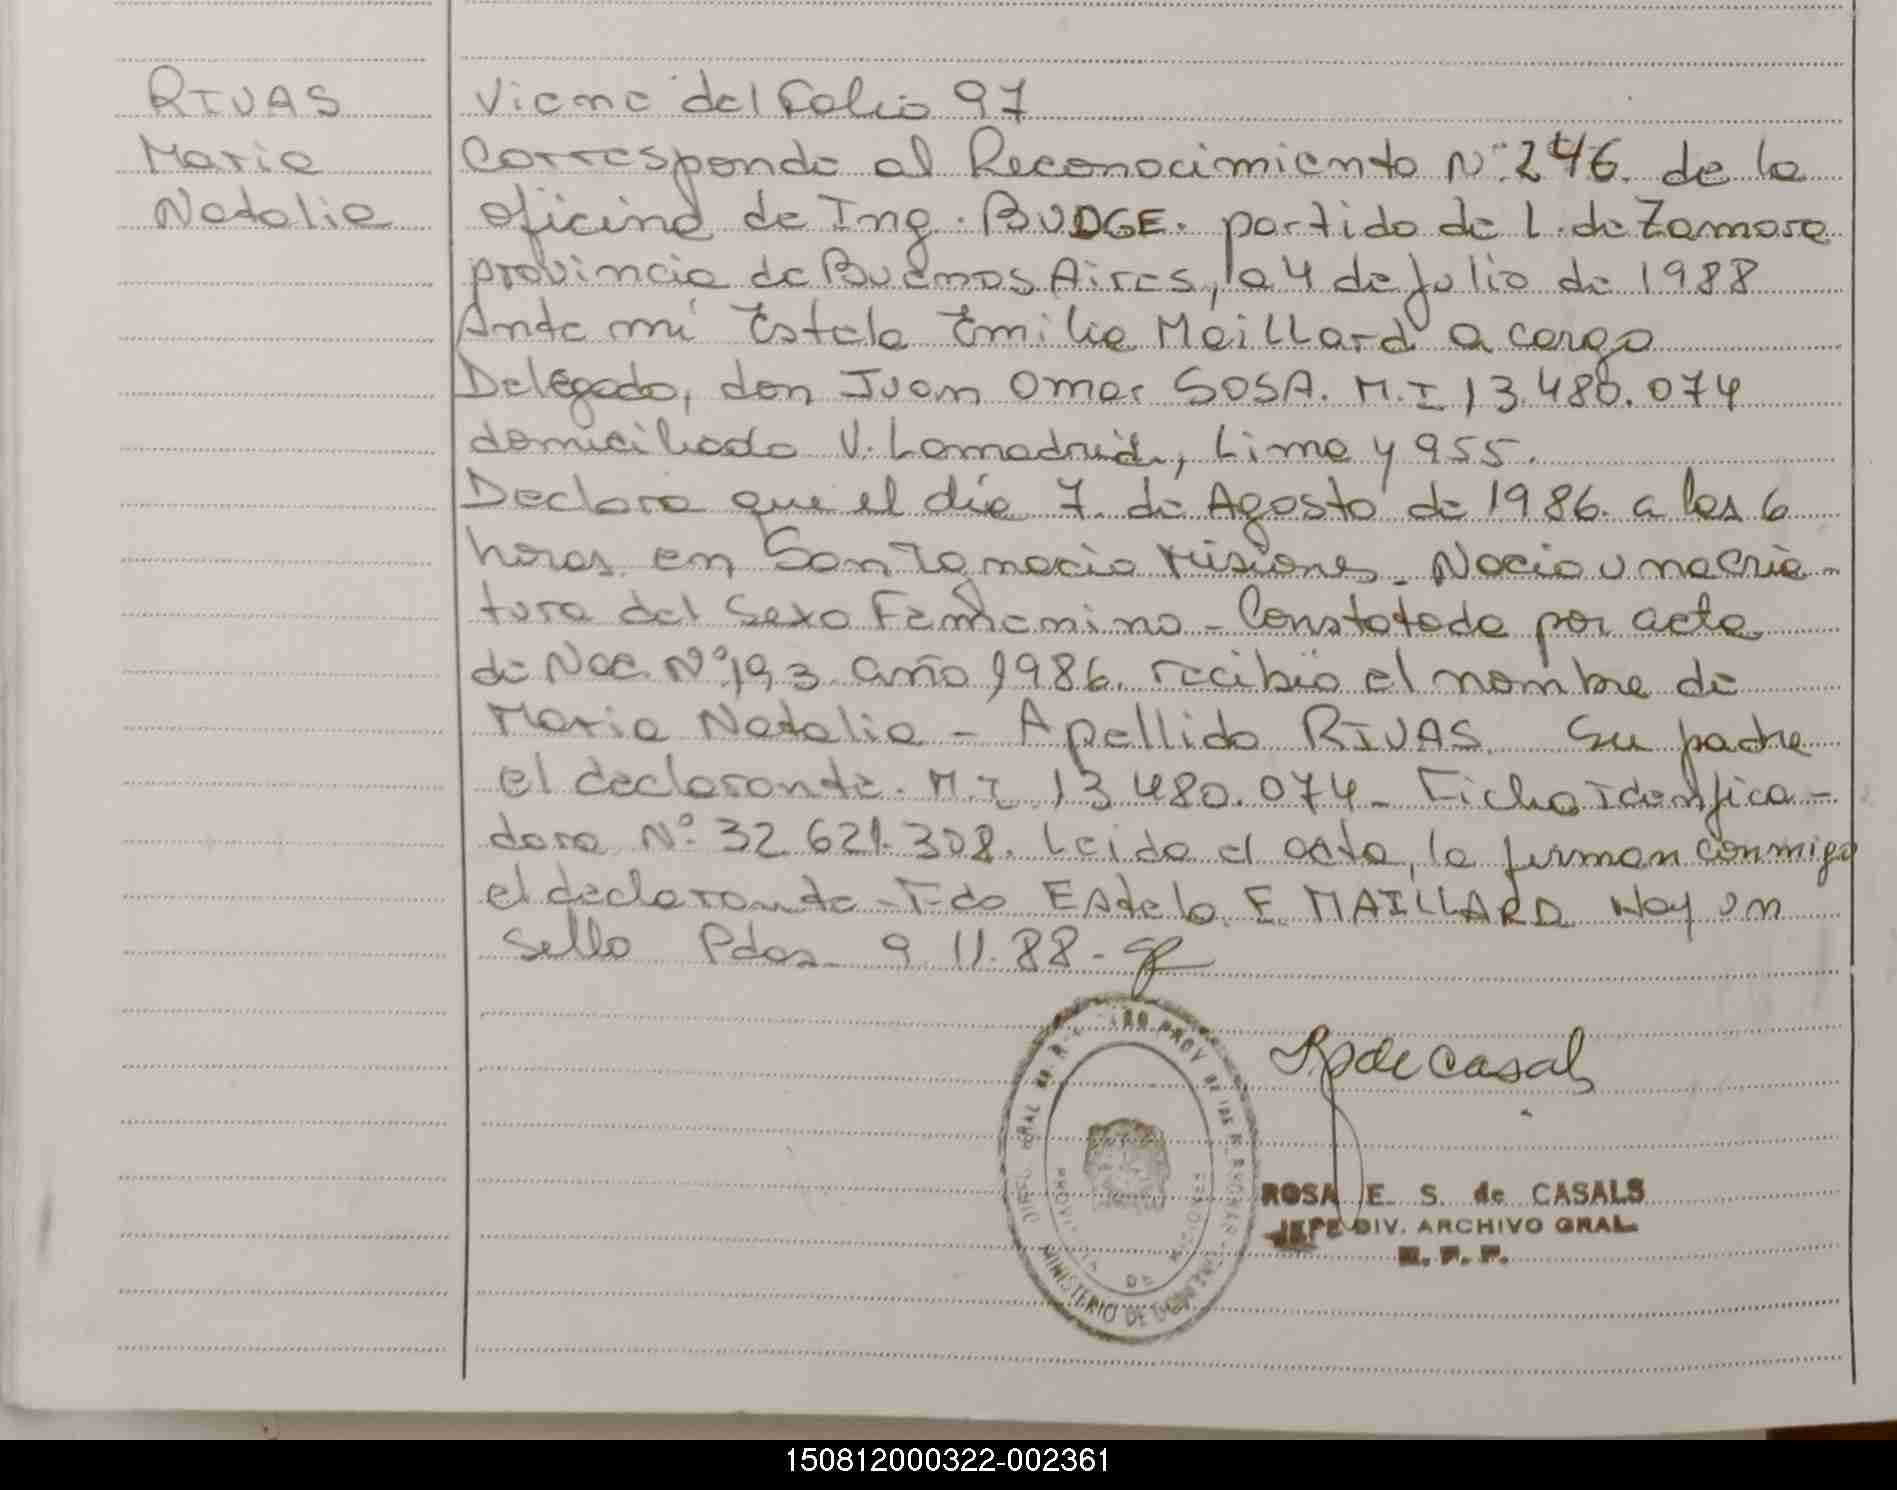 RIVAS
Maria
Natalia
Viene del Folio 97
Corresponde al Reconocimiento Nº 246. de la
oficina de Ing. BUDGE. partido de L. de Zamora
provincia de Buenos Aires, a 4 de Julio de 1988
Ante mí Estela Emilia Maillard a cargo
Delegado, don Juan Omar SOSA. M.I 13.480.074
domiciliado V. Lamadrid, Lima y 955.
Declara que el día 7. de Agosto de 1986. a las 6
horas en San Ignacio Misiones. Nacio una cria-
tura del Sexo Femenino - Constatada por acta
de Nac. Nº 193 año 1986. recibió el nombre de
Maria Natalia - Apellido RIVAS. Su padre
el declarante. M.I. 13.480.074 - Ficha Identifica-
dora Nº 32.621.308. Leida el acta, la firman conmigo
el declarante - Fdo Estela. E. MAILLARD Hay un
sello Pdas. 9.11.88.-
de Casals
ROSA E. S. de CASALS
JEFE DIV. ARCHIVO GRAL.
R. P. P.
MINISTERIO DE GOBIERNO
PROV. DE
150812000322-002361